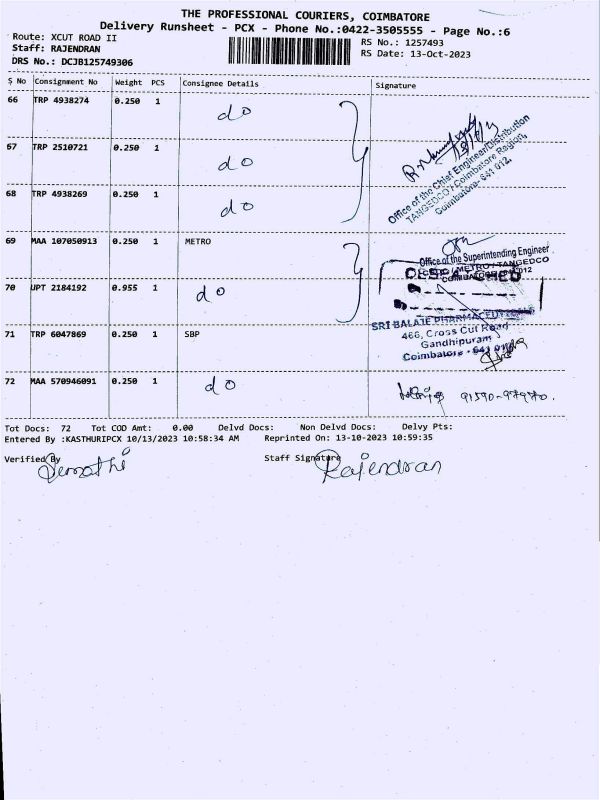 THE PROFESSIONAL COURIERS, COIMBATORE
Delivery Runsheet - PCX - Phone No.:0422-3505555 - Page No.:6
Route: XCUT ROAD II
RS No.: 1257493
Staff: RAJENDRAN
RS Date: 13-Oct-2023
DRS No.: DCJB125749306
S No Consignment No Weight PCS Consignee Details Signature
66 TRP 4938274 0.250 1 do
67 TRP 2510721 0.250 1 do
Office of the Chief Engineer/Distribution
TANGEDCO/Coimbatore Region,
Coimbatore- 641 012.
68 TRP 4938269 0.250 1 do
69 MAA 107050913 0.250 1 METRO
Office of the Superintending Engineer
METRO/TANGEDCO
70 UPT 2184192 0.955 1 do
SRI BALAJE PHARMACEUTICALS
466, Cross Cut Road
Gandhipuram
Coimbatore - 641 012
71 TRP 6047869 0.250 1 SBP
72 MAA 570946091 0.250 1 do
Tot Docs: 72 Tot COD Amt: 0.00 Delvd Docs: Non Delvd Docs: Delvy Pts:
Entered By :KASTHURIPCX 10/13/2023 10:58:34 AM Reprinted On: 13-10-2023 10:59:35
Verified By
Staff Signature
Rajendran